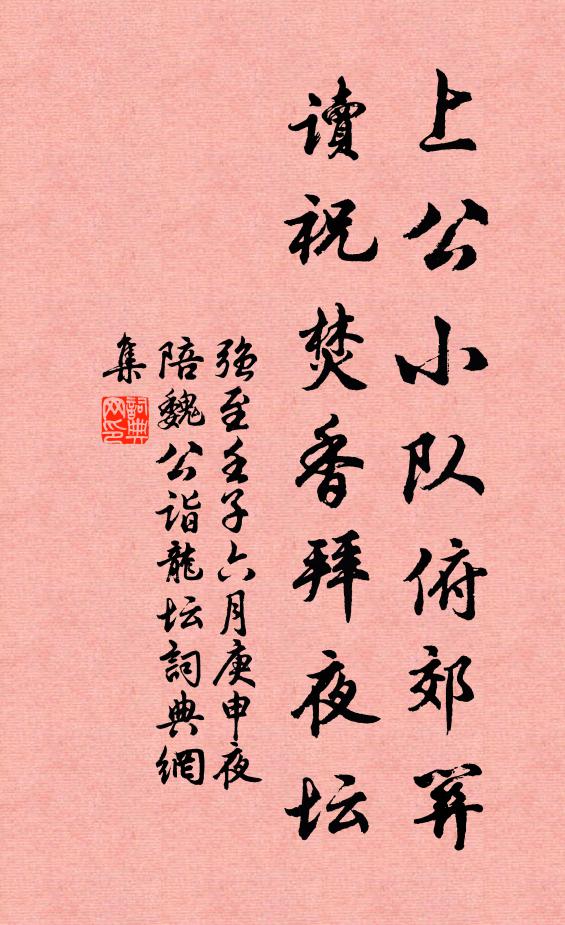 上公小队俯郊异
讀祝焚香拜夜坛
强至壬子六月庚申夜
陪魏公诣龍坛詞典網
集
詞典网印